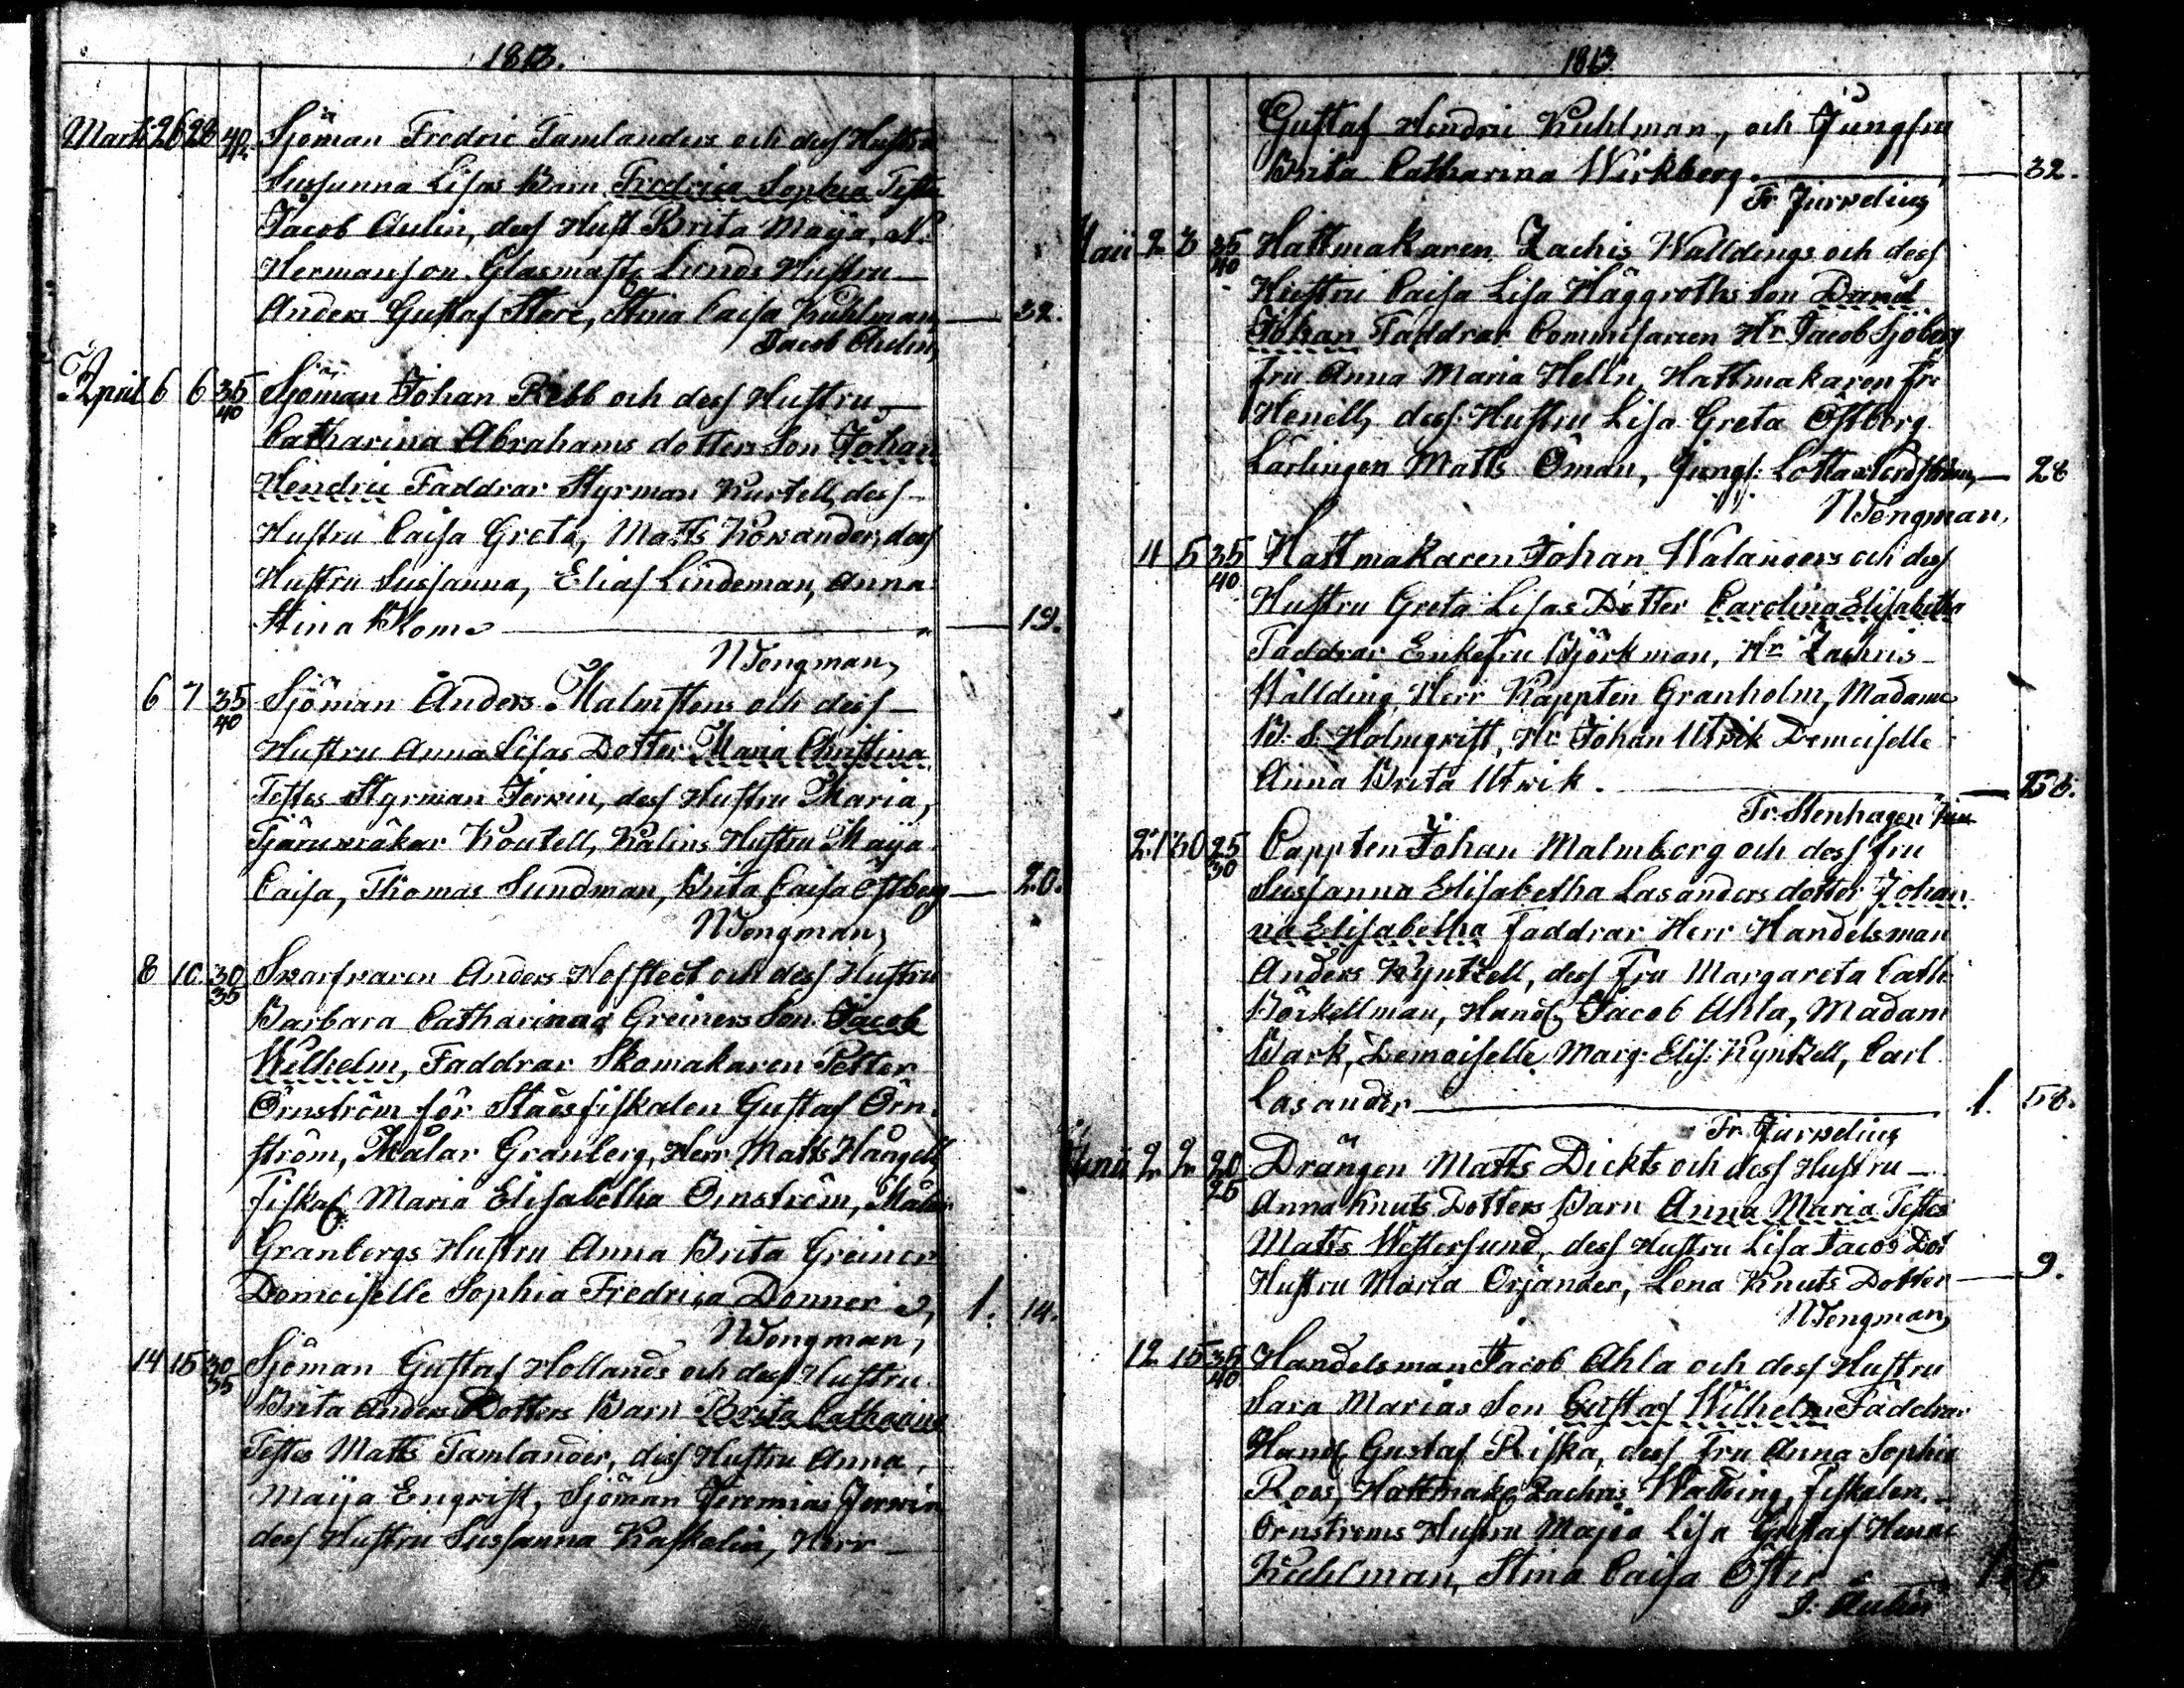 1813.
Martii 26 28 40 Sjöman Fredric Tamlanders och dess Hustru
Sussanna Lisas Barn Fredrica Sophia Testes
Jacob Aulin, dess Hust Brita Maija, N.
Hermanson. Glasmast. Lunds Hustru
Anders Gustaf Stare, Stina Caisa Kuhlman — 32.
Jacob Aulin,
April 6 6 35/40 Sjöman Johan Rebb och dess Hustru
Catharina Abrahams dotters Son Johan
Hendric Faddrar Styrman Kurtell, dess
Hustru Caisa Greta, Matts Kowander, dess
Hustru Sussanna, Elias Lindeman, Anna
Stina Blom — 19.
N Tengman,
6 7 35/40 Sjöman Anders Malmstens och dess
Hustru Anna Lisas Dotter Maria Christina
Testes Styrman Jerwin, dess Hustru Maria,
Tjäruwräkar Koutell, Kalins Hustru Maija
Caisa, Thomas Sundman, Brita Caisa Östberg — 20.
N Tengman,
8 10 30/35 Swarfwaren Anders Hoffstedt och dess Hustru
Barbara Catharinas Greiners Son Jacob
Wilhelm, Faddrar Skomakaren Petter
Örnström för Stadsfiskalen Gustaf Örn
ström, Målar Granberg, Herr Matts
Fiskal. Maria Elisabetha Örnström, Målar
Granbergs Hustru Anna Brita Greiner
Demoiselle Sophia Fredrica Donner 1. 14.
N Tengman,
14 15 30/35 Sjöman Gustaf Hollands och dess Hustru
Brita Anders Dotters Barn Brita Catharina
Testes Matts Tamlander, dess Hustru Anna,
Maija Enqvist, Sjöman Jeremias Jerwin
dess Hustru Sussanna Kaskelin, Herr
1813.
Gustaf Hendric Kuhlman, och Jungfru
Brita Catharina Wirkberg. — 32.
Fr. Jurvelius
Maii 2 3 35/40 Hattmakaren Zachis Walldings och dess
Hustru Caisa Lisa Häggroths Son Daniel
Johan Faddrar Commisarien Hr Jacob Sjöberg
Fru Anna Maria Helin, Hattmakaren Fr:
Henell, dess Hustru Lisa Greta Östberg
Lärlingen Matts Öman, Jungf: Lotta — 28
N Tengman,
4 5 35/40 Hattmakaren Johan Walanders och dess
Hustru Greta Lisas Dotter Carolina Elisabetha
Faddrar Enkefru Björkman, Hr Zachris
Wällding, Herr Kappten Granholm, Madame
B: S. Holmqvist, Hr Johan Utrik Demoiselle
Anna Brita Utrik. — 58.
Fr. Stenhagen
21 30 25/30 Cappten Johan Malmberg och dess Fru
Sussanna Elisabetha Lasanders dotter Johan
na Elisabetha Faddrar Herr Handelsman
Anders Kynkell, dess Fru Margareta Cath:
Börkellman, Hand. Jacob Ahla, Madam
Wark, Demoiselle Marg: Elis: Kynkell, Carl
Lasander — 1. 58.
Fr. Jurvelius
Junii 2 2 20/25 Drängen Matts Dickts och dess Hustru
Anna Knuts Dotters Barn Anna Maria Testes
Matts Westersund, dess Hustru Lisa Jacobs Dot
Hustru Maria Orjander, Lena Knuts Dotter — 9.
N Tengman,
12 15 35/40 Handelsman Jacob Ahla och dess Hustru
Sara Marias Son Gustaf Wilhelm Faddrar
Hand. Gustaf Riska, dess Fru Anna Sophia
Roos, Hattmak. Zachris Wallding, Fiskalen
Örnströms Hustru Maja Lisa Gustaf Henric
Kuhlman, Stina Caisa
J. Aulin